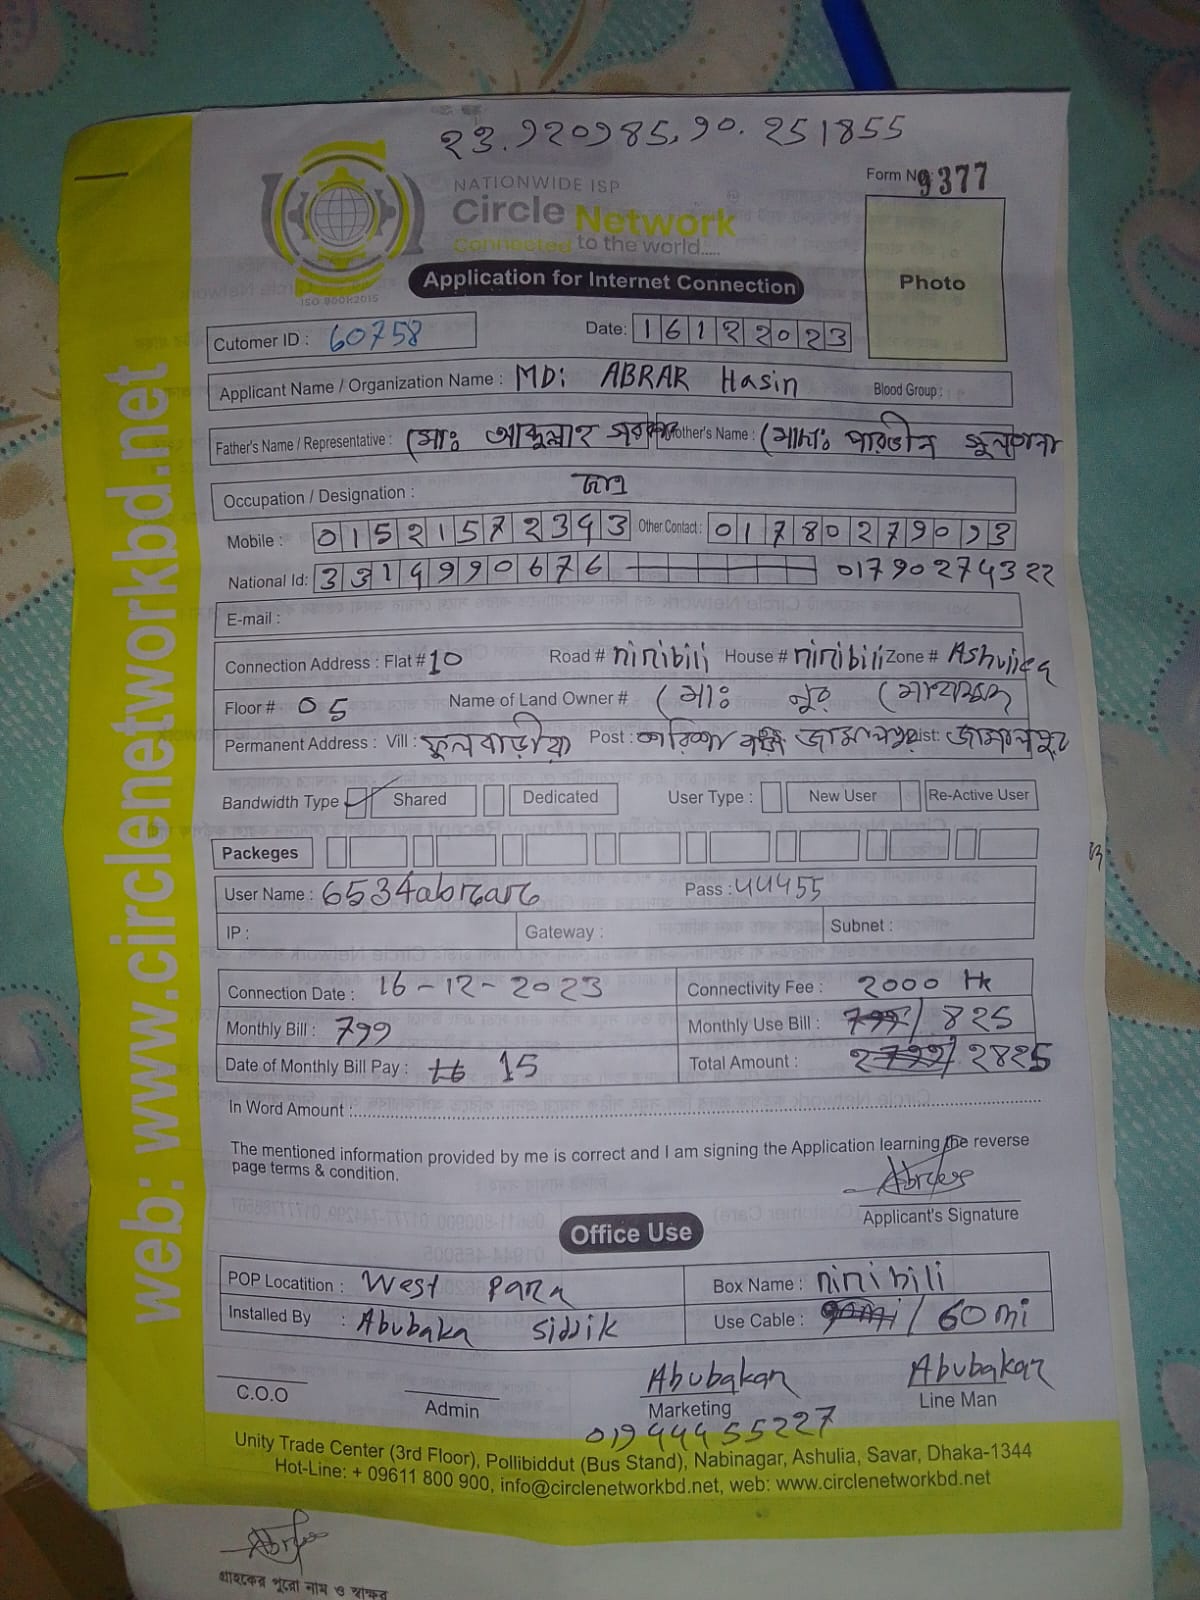 23.920985,90.251855
Form No: 9377
NATIONWIDE ISP
Circle Network
Connected to the world.....
ISO 9001:2015
Application for Internet Connection
Photo
Cutomer ID : 60758
Date: 16122023
Applicant Name / Organization Name : MD: ABRAR Hasin Blood Group :
Father's Name / Representative : মোঃ সরকার Mother's Name : মোছাঃ পারভীন সুলতানা
Occupation / Designation : ছাত্র
Mobile : 01521572393 Other Contact : 01780279093
National Id: 3319990676 01790274322
E-mail :
Connection Address : Flat # 10 Road # niribili House # niribili Zone # Ashulica
Floor # 05 Name of Land Owner # মোঃ নুর মোহাম্মদ
Permanent Address : Vill : ফুলবাড়ীয়া Post : জামালপুর Dist: জামালপুর
Bandwidth Type Shared Dedicated User Type : New User Re-Active User
Packeges
User Name : 6534abrar Pass : 44455
IP : Gateway : Subnet :
Connection Date : 16-12-2023 Connectivity Fee : 2000 tk
Monthly Bill : 799 Monthly Use Bill : 799/ 825
Date of Monthly Bill Pay : 16 15 Total Amount : 2799/ 2825
In Word Amount :
The mentioned information provided by me is correct and I am signing the Application learning the reverse
page terms & condition.
Applicant's Signature
Office Use
POP Locatition : West Para Box Name : niribili
Installed By : Abubaka Siddik Use Cable : / 60 mi
Abubakar Abubakar
C.O.O Admin Marketing Line Man
01944455227
Unity Trade Center (3rd Floor), Pollibiddut (Bus Stand), Nabinagar, Ashulia, Savar, Dhaka-1344
Hot-Line: + 09611 800 900, info@circlenetworkbd.net, web: www.circlenetworkbd.net
web: www.circlenetworkbd.net
গ্রাহকের পুরো নাম ও স্বাক্ষর